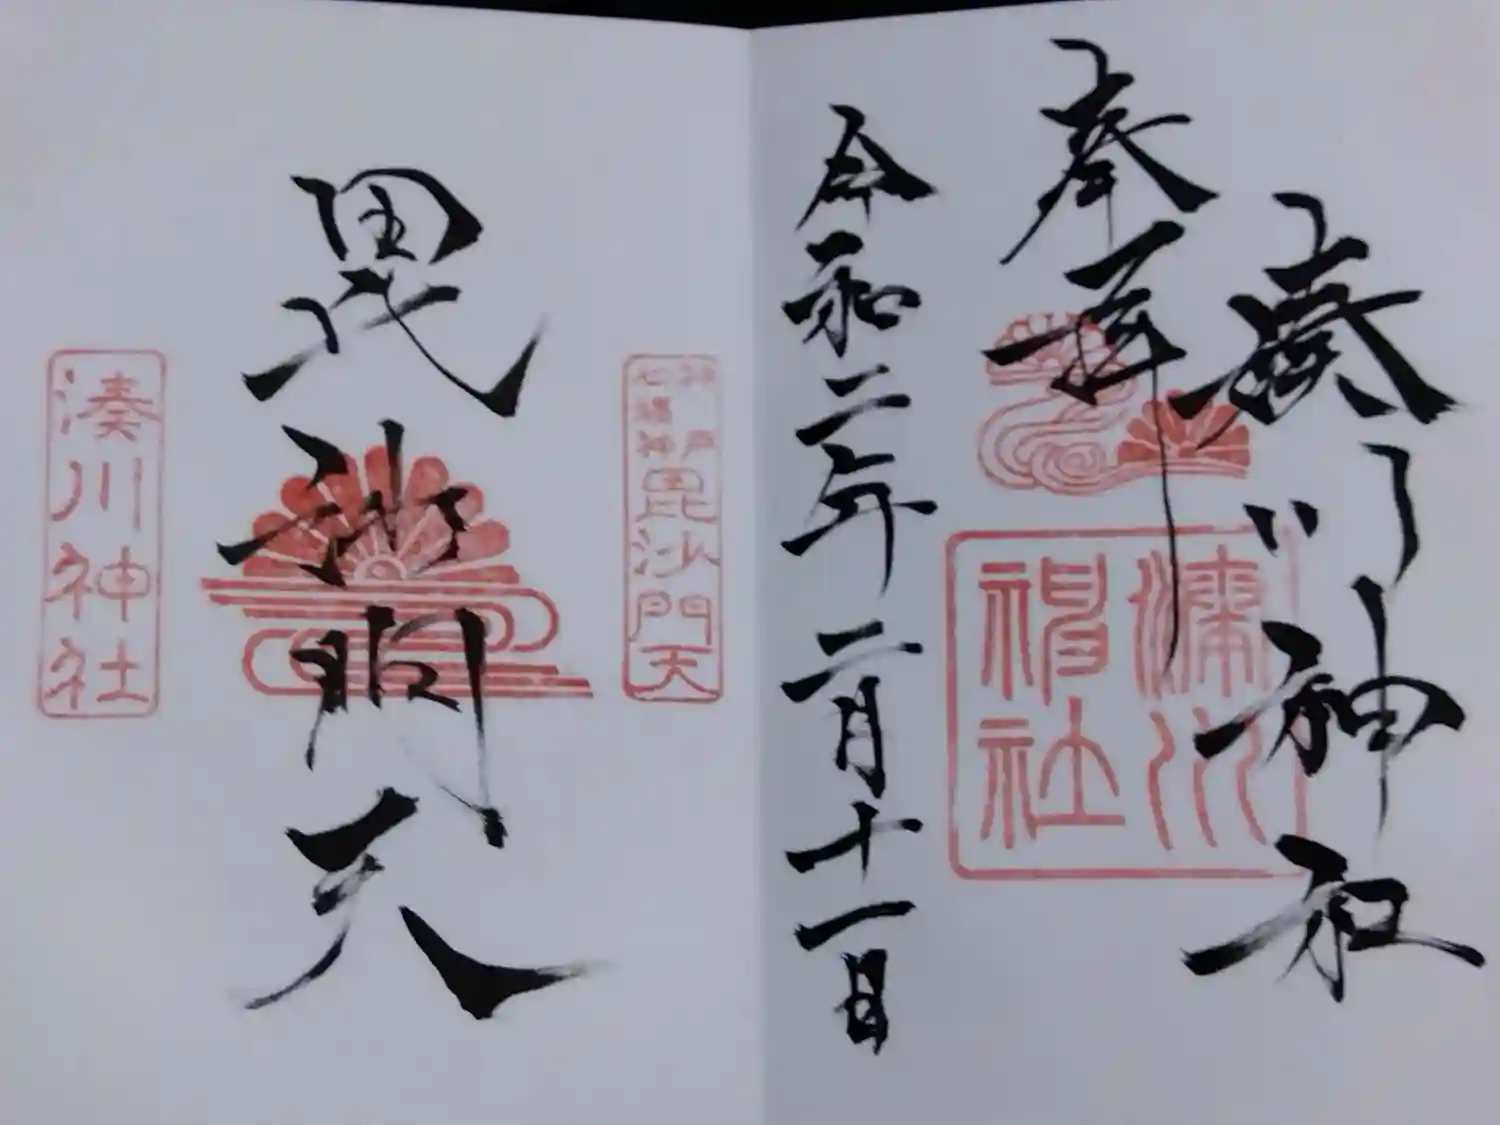 湊川神社
奉拝
湊川
神社
令和二年二月十一日
神戸
七福神
毘沙門天
毘沙門天
湊川神社